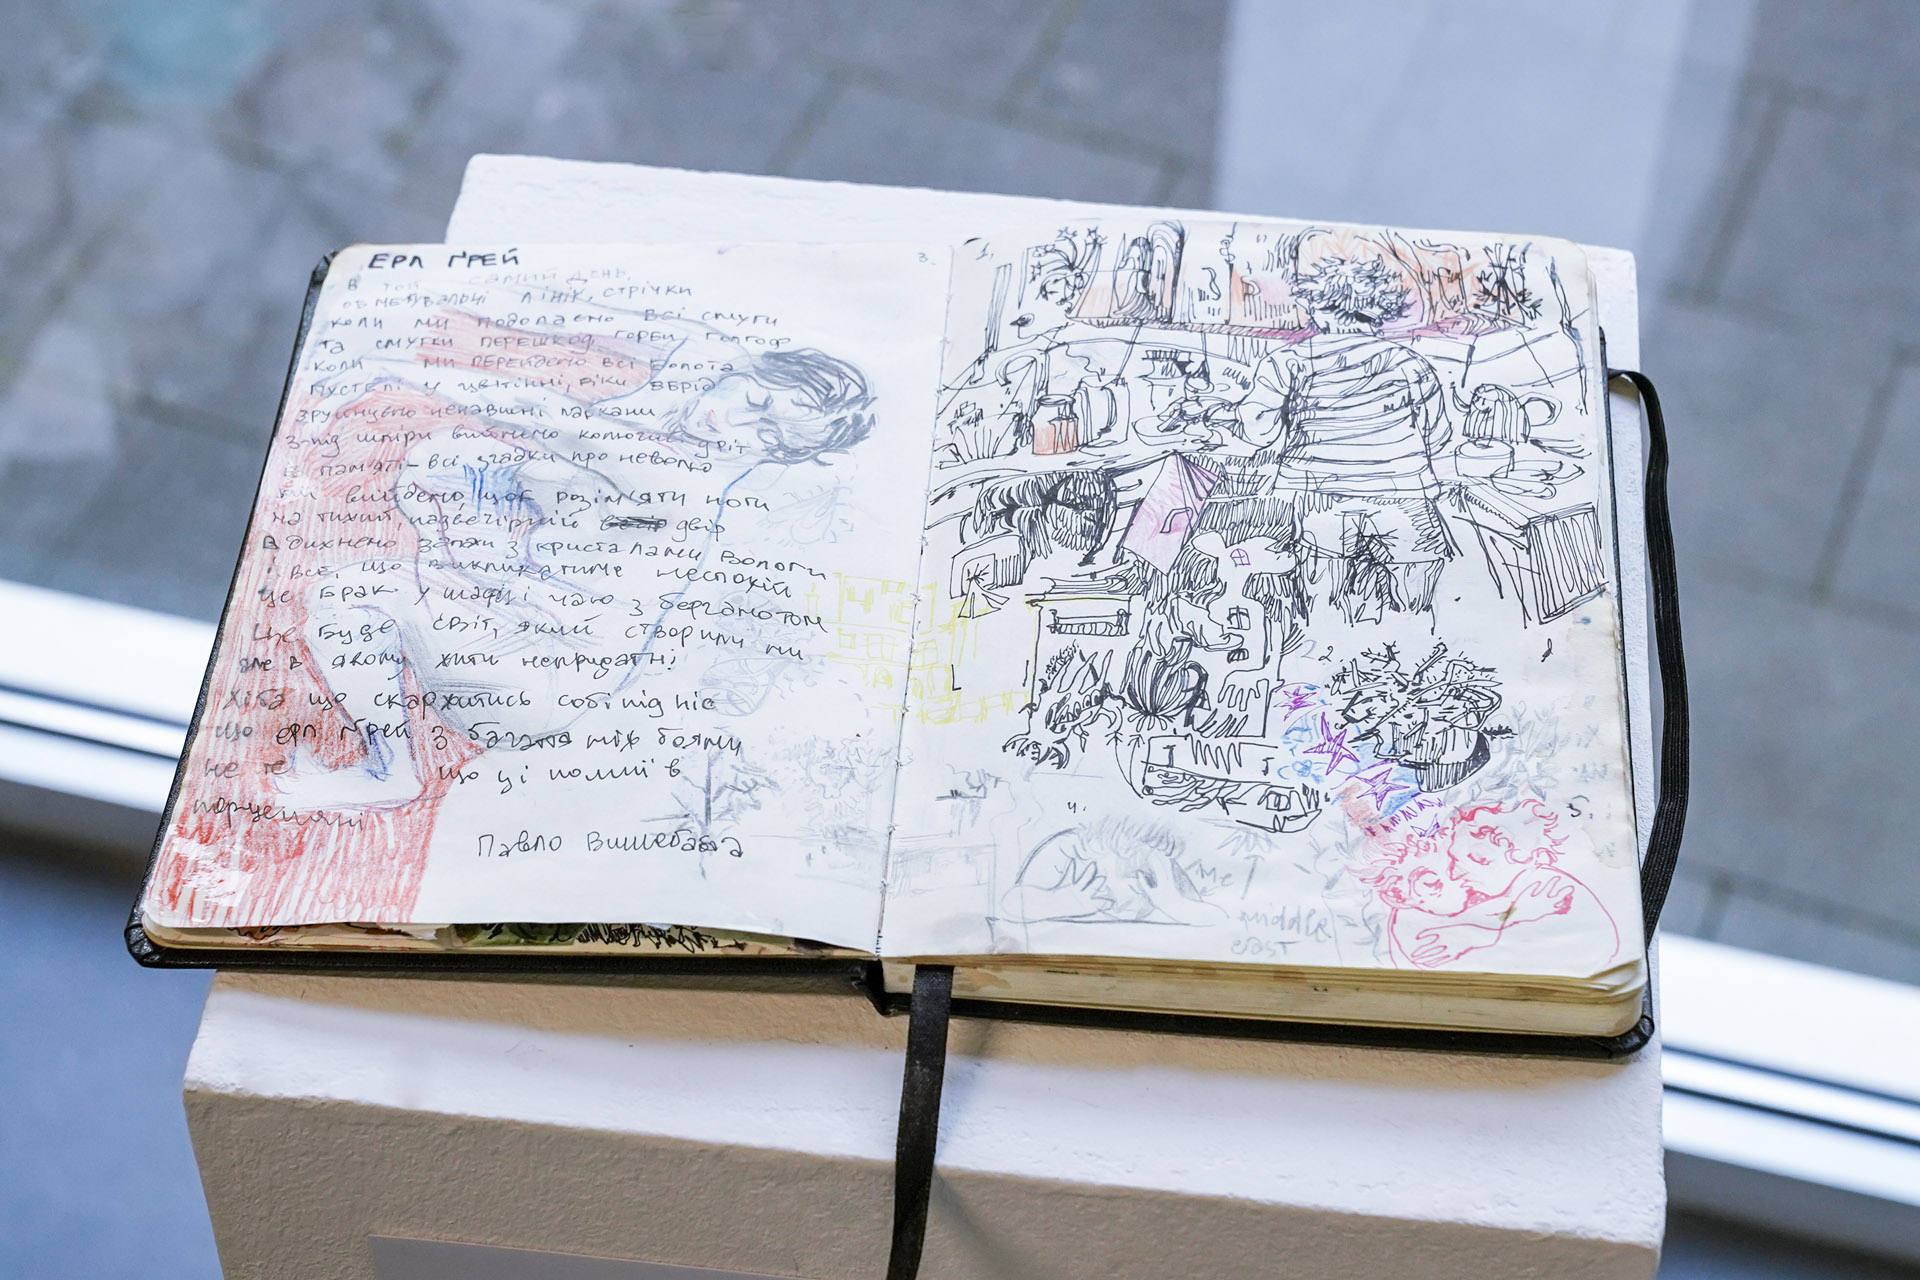 ЕРЛ ҐРЕЙ
В той самий день,
обмежувальні лінії, стрічки
коли ми подолаємо всі смуги
та смуги перешкод, горби голгоф
коли ми перейдемо всі болота
пустелі у цвітінні, ріки вбрід
зруйнуємо ненависні паркани
з-під шкіри виймемо колючий дріт
з пам'яті - всі згадки про неволю
ми вийдемо, щоб розім'яти ноги
на тихий, надвечірній двір
вдихнемо запахи з кристалами вологи
і все, що викликатиме неспокій
це брак у шафці чаю з бергамотом
це буде світ, який створили ми
але в якому жити непридатні
хіба що скаржитись собі під ніс
що ерл ґрей з багаття між боями
не те що ці помиї в
порцеляні
Павло Вишебаба
3.
1.
2
4.
Me
middle
east
5.